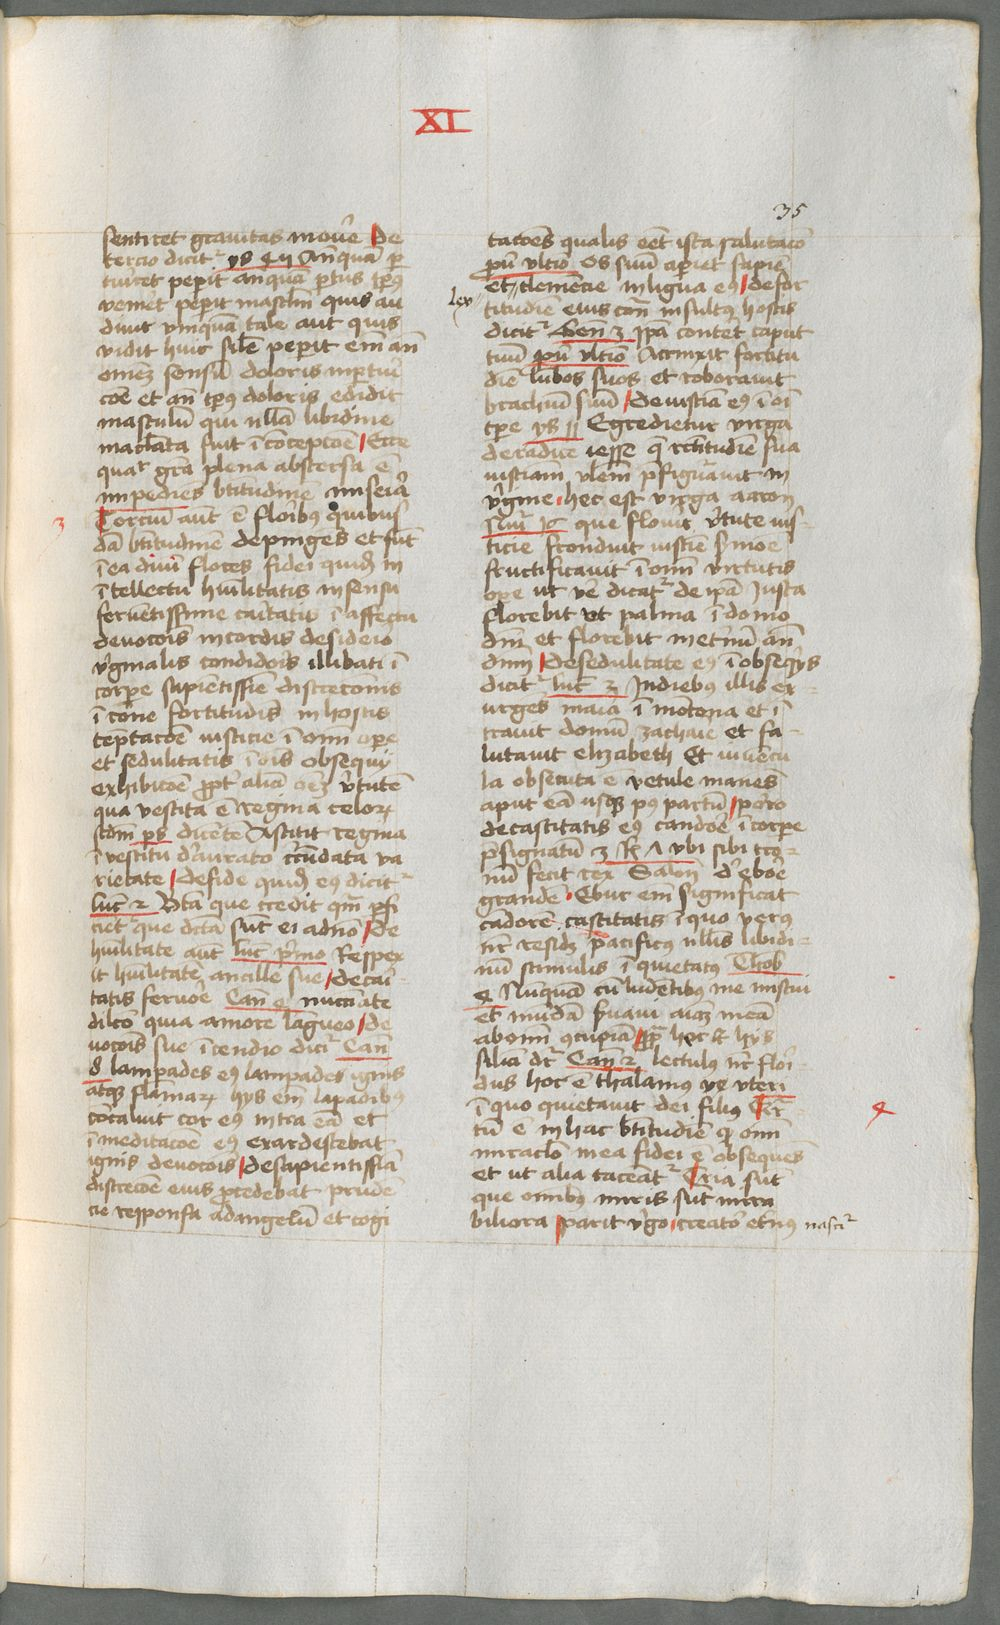 XI
35
sentiret grauitas moūe De
tercio dicit᷑ ys 4 ij Anquā p̄
turiret peperit anquā partus tp̄us
veniret peperit masclm̄ quis au
diuit vnquam tale aut quis
vidit huic sil̄e peperit em̄ an̄
om̄ez sensū doloris inp̄turi
cōe et an̄ tp̄us doloris edidit
masculū qui nll̄a libidine
maclata fuit ī cōcepcōe Ecce
quar̄ gr̄a plena abstersa ē
impediēs bt̄itudinē miseia
3
Terciū aut̄ ē floribus quibus
dā bt̄itudinē depinges et sut̄
ī ea diuī flores fidei quid̄ in
ītellectu hūilitatis in sensu
feruētissime cāitatis ī affectu
deuocōis in cordis desideio
v̄ginalis condidoīs illibati ī
corpe sapientissīe discrecōnis
ī cōne fortitudīs in hostis
tēptacōe iusticie ī om̄i ope
et sedulitatis ī oīs obsequij
exhibicōe pp̄t aliā oēz v̄tutē
qua vestita ē regina celoꝝ
scdm̄ ps̄ dicēte Astitit regina
ī vestitu d̄aurato circūdata va
rietate De fide quid̄ eꝰ dicit᷑
luc̄ 2 Bt̄a que credit qm̄ p̄fi
ciēt᷑ que dictā sūt ei a dn̄o De
hūilitate aut̄ luc̄ p̄mo Respex
it hūilitatē ancille sue De cāi
tatis feruōe Can̄ 4 nūciate
dilc̄o quia amore langueo De
uocōis sue īcendio dicit᷑ Can̄
8 lampades eꝰ lampades ignis
atqꝫ flāmaꝝ hys em̄ lāpadibꝰ
cōcaluit cor eꝰ intra eā et
ī meditacōe eꝰ exardescebat
ignis deuocōis De sapientissīa
discrecōe eius p̄cedebat prudē
cie responsa ad angelū et cogi
tacōes qualis eēt ista salutacō
pū vltīo Os suū aperiet sapiē
et clemēcie in ligua eꝰ De for
lex
titudīe eius cont̄ insultꝰ hostis
dicit᷑ Gen̄ 3 Ip̄a conteret caput
tuū pū vltīo Accinxit fortitu
diē lūbos suos et roborauit
brachiū suū De iusticīa eꝰ ī oī
tp̄e ys 11 Egredietur virga
de radice iesse q̄ rctitudīe sua
iusticiam vl̄em p̄figurauit in
v̄gine hec est virga aaron
Nūi 17 que floruit v̄tute ius-
ticie fronduit iusticīe s̄mōe
fructificauit ī om̄i virtutis
ope ut v̄e dicat᷑ de ip̄a Iusta
florebit ut palma ī domo
dn̄i et florebit in et̄nū an̄
dn̄m De sedulitate eꝰ ī obseq̄ys
dicit᷑ luc̄ 2 In diebꝰ illis ex-
urges maria ī mōtana et ī
trauit domū zacharie et sa-
lutauit elizabeth Et iuuēcu
la obsecuta ē vetule manēs
aput eā usqꝫ pꝰ partū Porro
de castitatis eꝰ candōe ī corpe
p̄signatū 3 R̄ 1 Vbi sibi tro-
nū fecit rex Salon̄ d̄ eboe
grandē Ebur em̄ significat
cādorē castitatis ī quo verꝰ
nr̄ residꝫ pacificꝰ nll̄is libidi-
nū stimulis ī quietatꝰ Thob
4 Nūquā cū ludētibꝰ me miscui
et mūdā s̄uaui aīaꝫ meā
ab om̄i ꝯcupiā p̄ hoc R̄ hys
silia dr̄ Can̄ 2 lectulꝰ nr̄ flori-
dus hoc ē thalamꝰ ve vteri
ī quo quietauit dei filius Qr̄
4
tū ē in hac bt̄itudīe qꝫ om̄i
miraclō mea fidei ē obsequēs
et ut alia taceāt᷑ Tria sūt
que om̄ibꝰ miris sūt mira
biliora parit v̄go creator et̄nꝰ nasci᷑